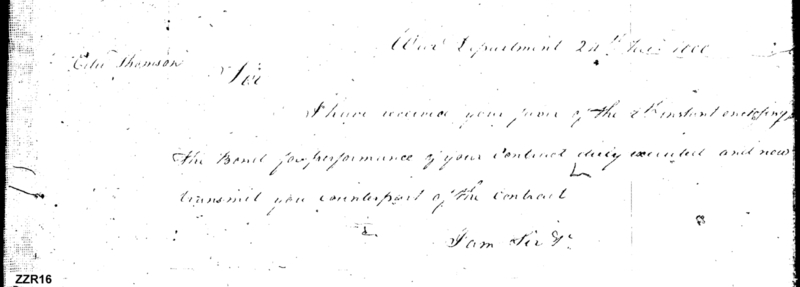 War Department 24th 1800
Thomson
Sir
I have received your favor of the instant enclosing
the Bond for performance of your Contract duly executed and now
transmit you counterpart of the Contract
I am Sir &c.
ZZR16